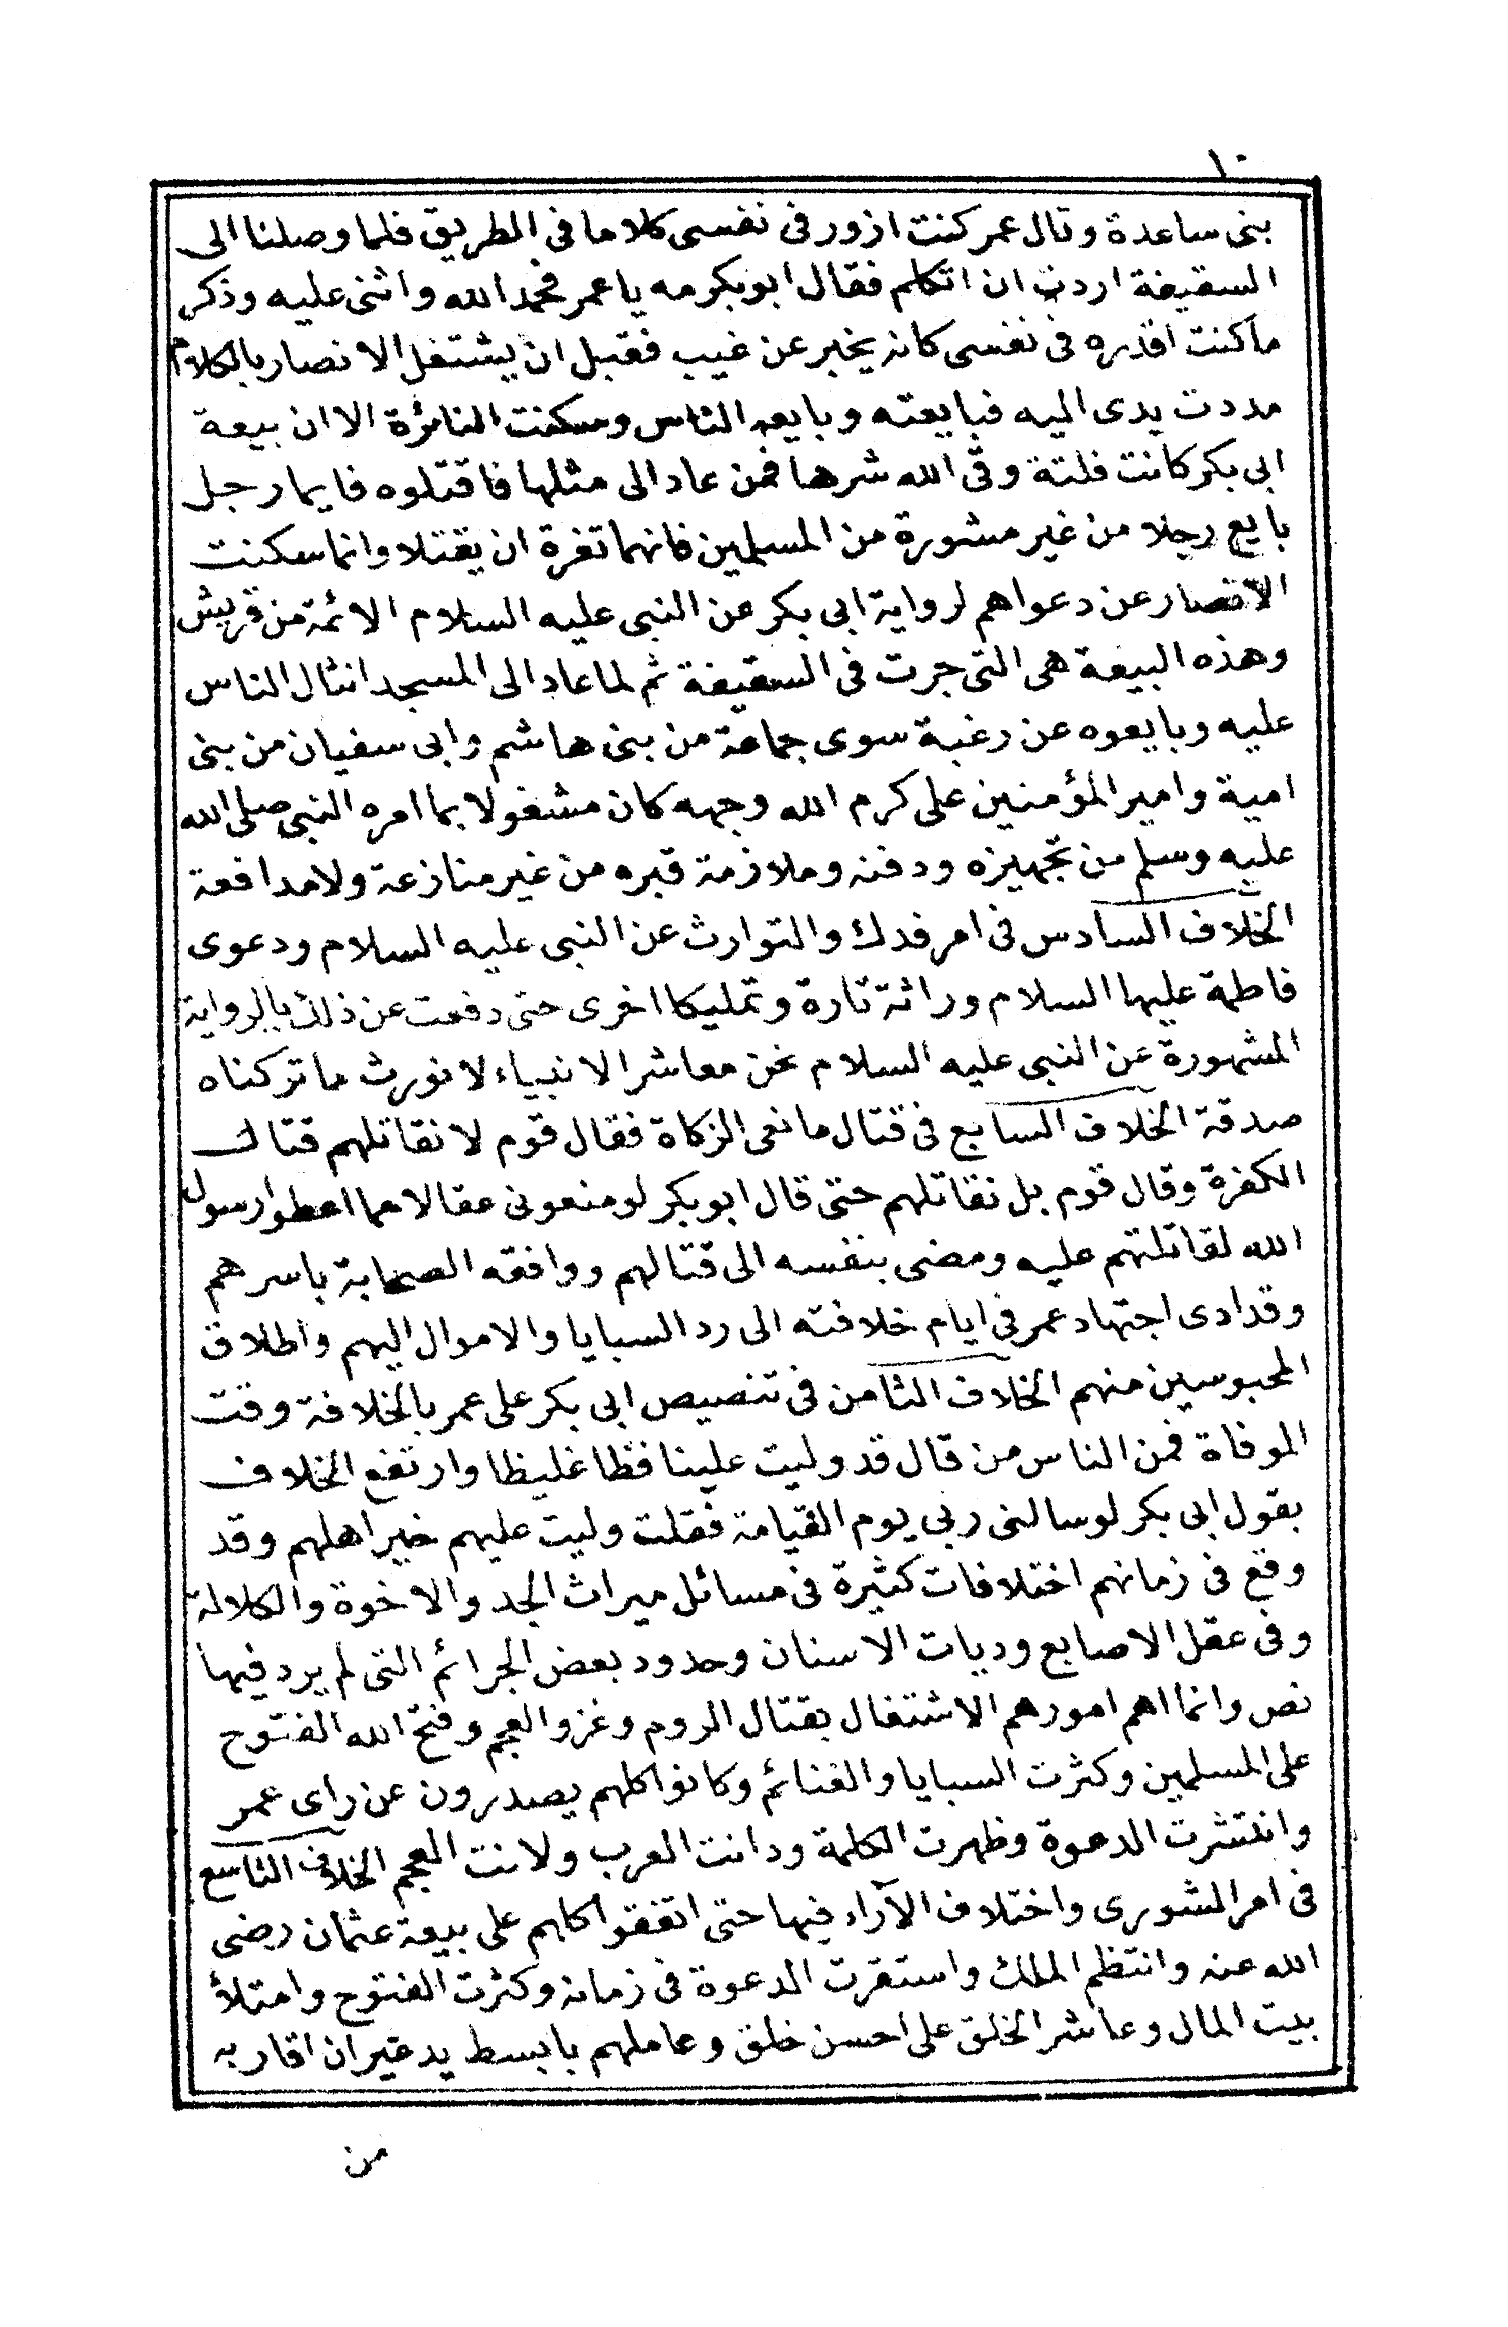 ١٠
بنى ساعدة وقال عمر كنت ازور فى نفسى كلاما فى الطريق فلما وصلنا الى
السقيفة اردت ان اتكلم فقال ابو بكر مه يا عمر فحمد الله واثنى عليه وذكر
ما كنت اقدره فى نفسى كانه يخبر عن غيب فقبل ان يشتغل الانصار بالكلام
مددت يدى اليه فبايعته وبايعه الناس وسكنت النائرة الا ان بيعة
ابى بكر كانت فلتة وقى الله شرها فمن عاد الى مثلها فاقتلوه فايما رجل
بايع رجلا من غير مشورة من المسلمين فانهما تغرة ان يقتلا وانما سكنت
الانصار عن دعواهم لرواية ابى بكر عن النبى عليه السلام الائمة من قريش
وهذه البيعة هى التى جرت فى السقيفة ثم لما عاد الى المسجد انثال الناس
عليه وبايعوه عن رغبة سوى جماعة من بنى هاشم وابى سفيان من بنى
امية وامير المؤمنين على كرم الله وجهه كان مشغولا بما امره النبى صلى الله
عليه وسلم من تجهيزه ودفنه وملازمة قبره من غير منازعة ولا مدافعة
الخلاف السادس فى امر فدك والتوارث عن النبى عليه السلام ودعوى
فاطمة عليها السلام وراثة تارة وتمليكا اخرى حتى دفعت عن ذلك بالرواية
المشهورة عن النبى عليه السلام نحن معاشر الانبياء لا نورث ما تركناه
صدقة الخلاف السابع فى قتال مانعى الزكاة فقال قوم لا نقاتلهم قتال
الكفرة وقال قوم بل نقاتلهم حتى قال ابو بكر لو منعونى عقالا مما اعطوا رسول
الله لقاتلتهم عليه ومضى بنفسه الى قتالهم ووافقه الصحابة باسرهم
وقد ادى اجتهاد عمر فى ايام خلافته الى رد السبايا والاموال اليهم واطلاق
المحبوسين منهم الخلاف الثامن فى تنصيص ابى بكر على عمر بالخلافة وقت
الوفاة فمن الناس من قال قد وليت علينا فظا غليظا وارتفع الخلاف
بقول ابى بكر لو سالنى ربى يوم القيامة فقلت وليت عليهم خير اهلهم وقد
وقع فى زمانهم اختلافات كثيرة فى مسائل ميراث الجد والاخوة والكلالة
وفى عقل الاصابع وديات الاسنان وحدود بعض الجرائم التى لم يرد فيها
نص وانما اهم امورهم الاشتغال بقتال الروم وغزو العجم وفتح الله الفتوح
على المسلمين وكثرت السبايا والغنائم وكانوا كلهم يصدرون عن راى عمر
وانتشرت الدعوة وظهرت الكلمة ودانت العرب ولانت العجم الخلاف التاسع
فى امر الشورى واختلاف الآراء فيها حتى اتفقوا كلهم على بيعة عثمان رضى
الله عنه وانتظم الملك واستقرت الدعوة فى زمانه وكثرت الفتوح وامتلأ
بيت المال وعاشر الخلق على احسن خلق وعاملهم بابسط يد غير ان اقاربه
من